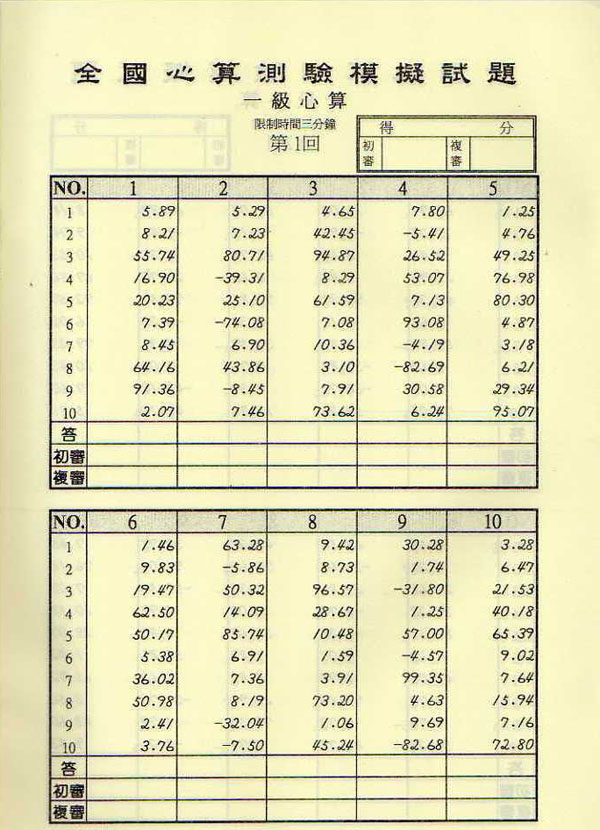 全國心算測驗模擬試題
一級心算
限制時間三分鐘
第1回
得 分
初審 複審
NO. 1 2 3 4 5
1 5.89 5.29 4.65 7.80 1.25
2 8.21 7.23 42.45 -5.41 4.76
3 55.74 80.71 94.87 26.52 49.25
4 16.90 -39.31 8.29 53.07 76.98
5 20.23 25.10 61.59 7.13 80.30
6 7.39 -74.08 7.08 93.08 4.87
7 8.45 6.90 10.36 -4.19 3.18
8 64.16 43.86 3.10 -82.69 6.21
9 91.36 -8.45 7.91 30.58 29.34
10 2.07 7.46 73.62 6.24 95.07
答
初審
複審
NO. 6 7 8 9 10
1 1.46 63.28 9.42 30.28 3.28
2 9.83 -5.86 8.73 1.74 6.47
3 19.47 50.32 96.57 -31.80 21.53
4 62.50 14.09 28.67 1.25 40.18
5 50.17 85.74 10.48 57.00 65.39
6 5.38 6.91 1.59 -4.57 9.02
7 36.02 7.36 3.91 99.35 7.64
8 50.98 8.19 73.20 4.63 15.94
9 2.41 -32.04 1.06 9.69 7.16
10 3.76 -7.50 45.24 -82.68 72.80
答
初審
複審